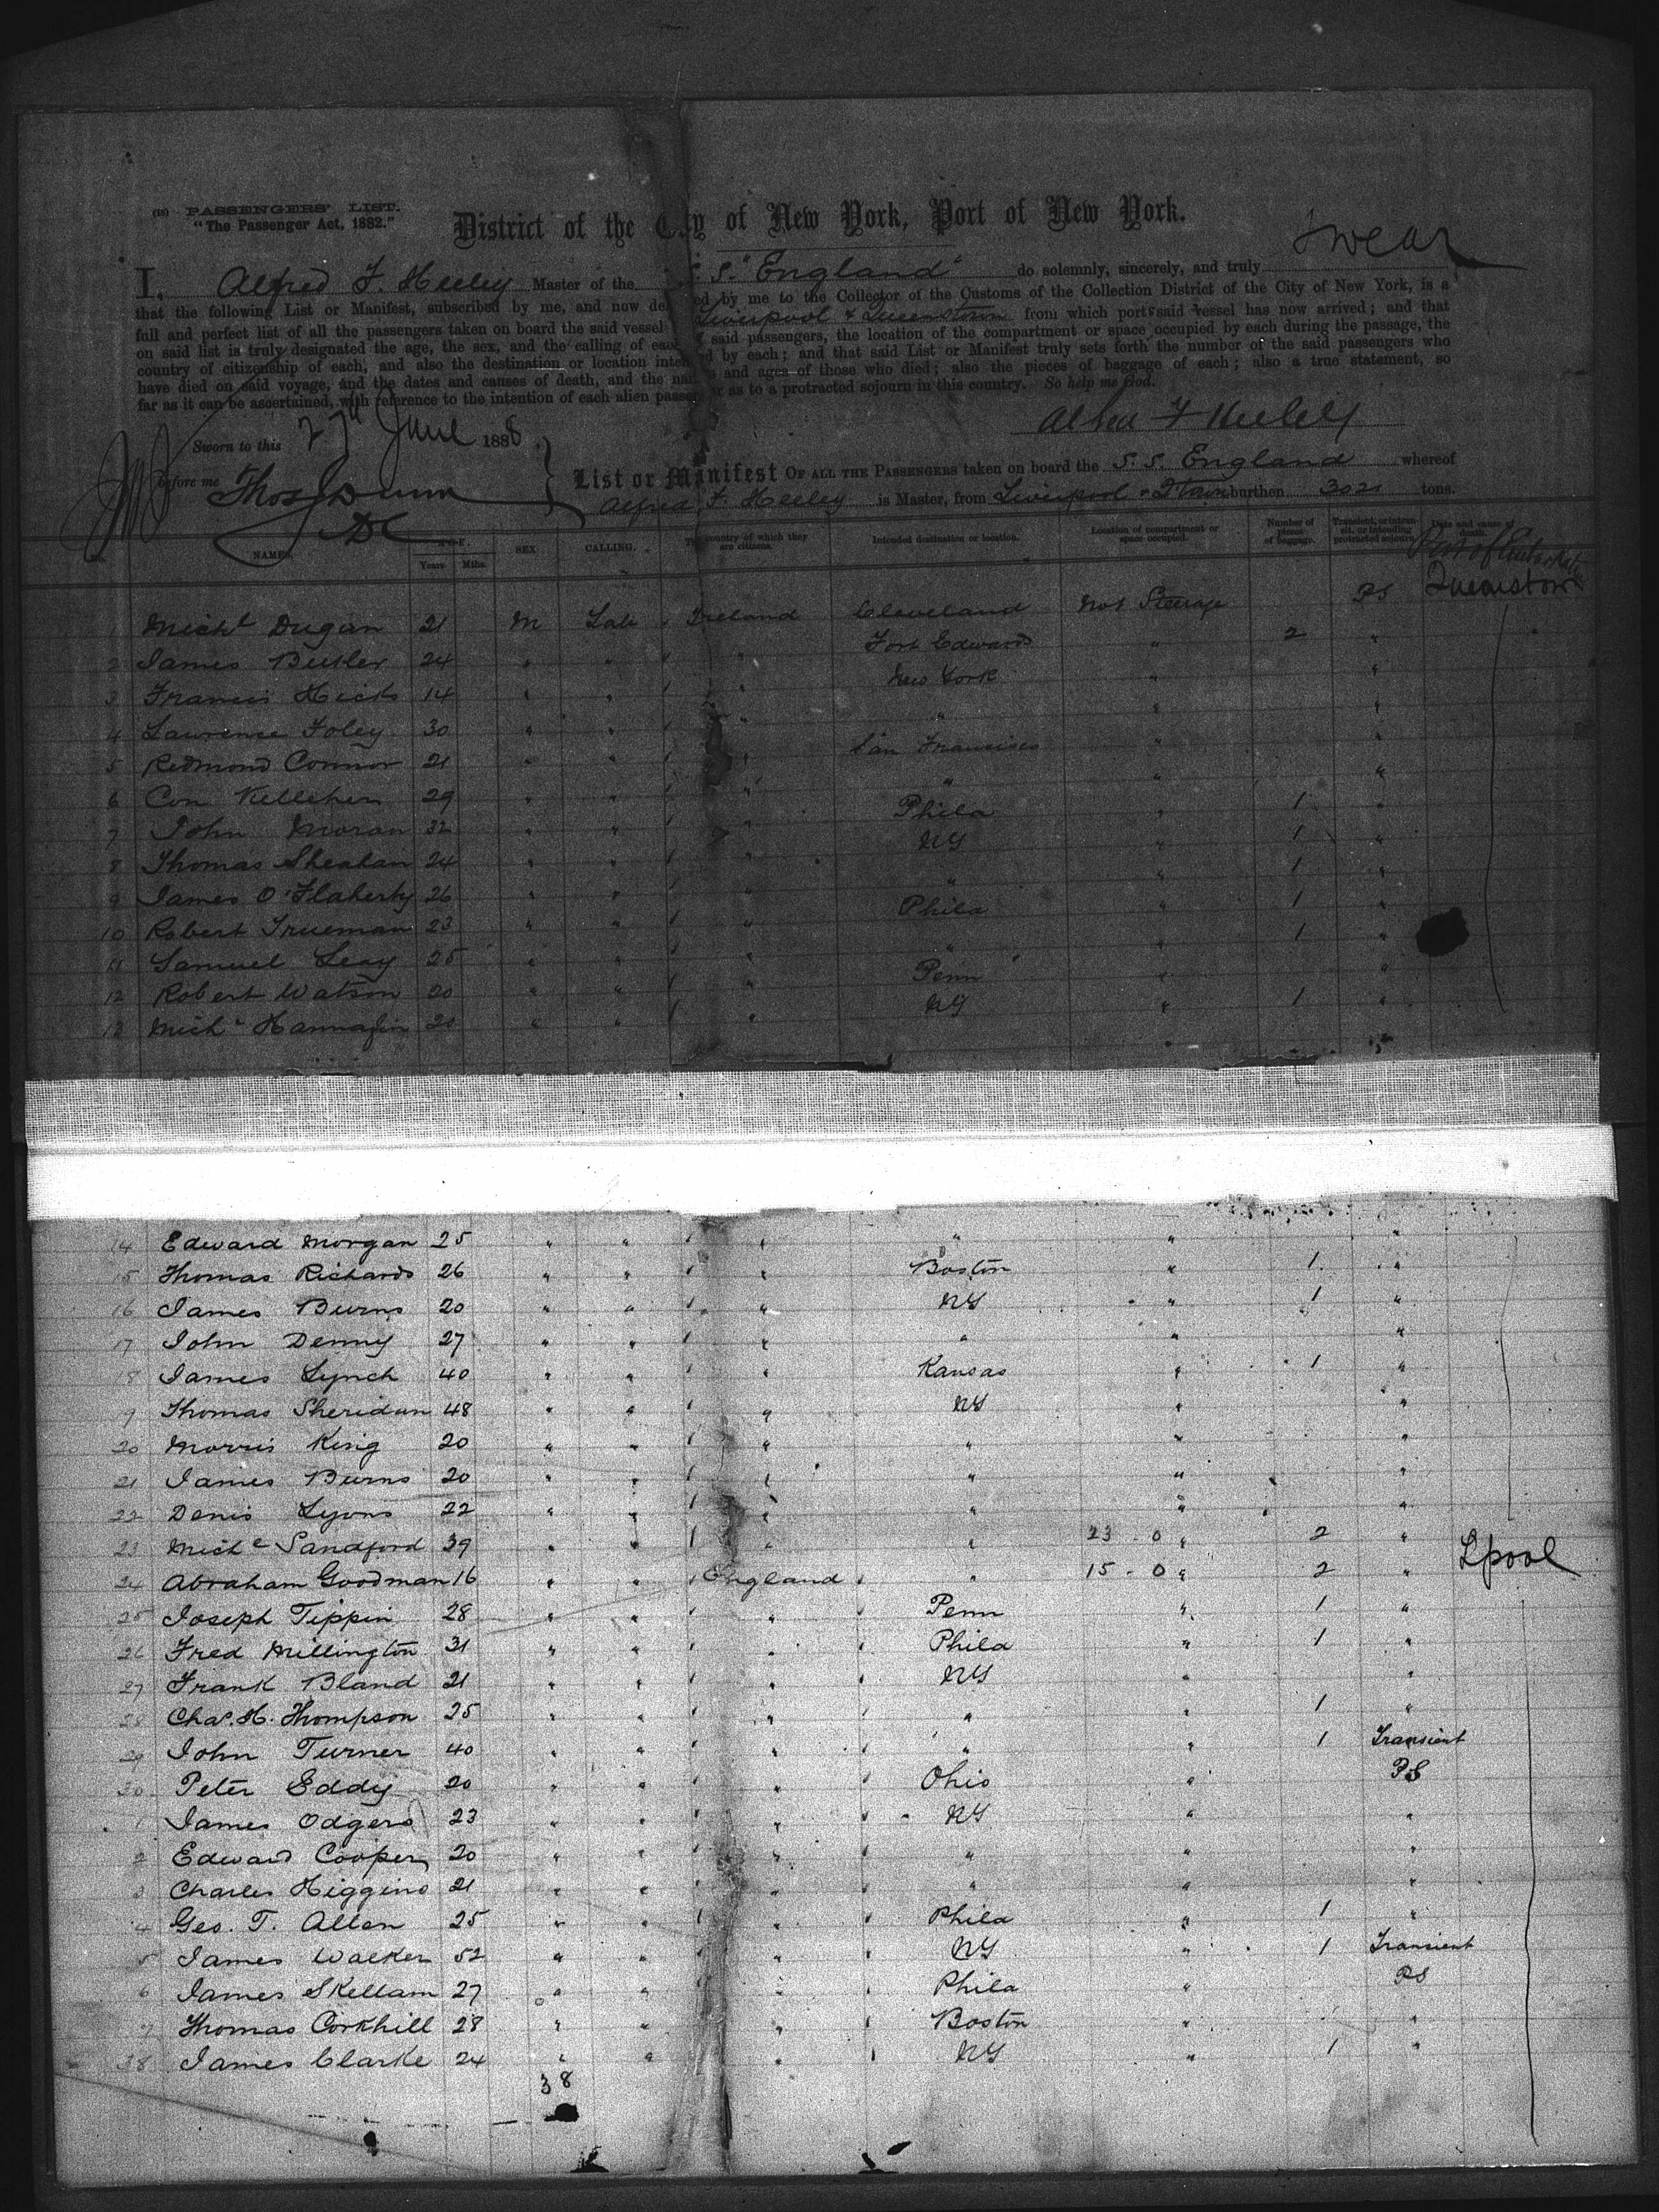 (18) PASSENGERS' LIST.
"The Passenger Act, 1882."
District of the City of New York, Port of New York.
I, Alfred F. Heeley Master of the S.S. "England" do solemnly, sincerely, and truly swear
that the following List or Manifest, subscribed by me, and now del ed by me to the Collector of the Customs of the Collection District of the City of New York, is a
full and perfect list of all the passengers taken on board the said vessel Liverpool & Queenstown from which port said vessel has now arrived; and that
on said list is truly designated the age, the sex, and the calling of each said passengers, the location of the compartment or space occupied by each during the passage, the
country of citizenship of each, and also the destination or location inten ed by each; and that said List or Manifest truly sets forth the number of the said passengers who
have died on said voyage, and the dates and causes of death, and the na s and ages of those who died; also the pieces of baggage of each; also a true statement, so
far as it can be ascertained, with reference to the intention of each alien passe r as to a protracted sojourn in this country. So help me God.
Alfred F Heeley
Sworn to this 27th June 1888
before me Thos Dunn
DC
List or Manifest OF ALL THE PASSENGERS taken on board the S.S. England whereof
Alfred F. Heeley is Master, from Liverpool & Qtown burthen 3021 tons.
No. NAMES. AGE. Years Mths. SEX CALLING. The country of which they are citizens. Intended destination or location. Location of compartment or space occupied. Number of pieces of baggage. Transient, or intransit, or intending protracted sojourn. Date and cause of death.
Port of Embarkatn
1 Michl Dugan 21 M Lab Ireland Cleveland No1 Steerage PS Queenstown
2 James Butler 24 " " " Fort Edward " 2 "
3 Francis Hicks 14 " " " New York " "
4 Lawrence Foley 30 " " " " " "
5 Redmond Connor 21 " " " San Francisco " "
6 Con Kelleher 29 " " " " " "
7 John Moran 32 " " " Phila " 1 "
8 Thomas Sheahan 24 " " " NY " 1 "
9 James O'Flaherty 26 " " " " " 1 "
10 Robert Trueman 23 " " " Phila " 1 "
11 Samuel Leay 25 " " " " " 1 "
12 Robert Watson 20 " " " Penn " "
13 Michl Hannafin 20 " " " NY " 1 "
14 Edward Morgan 25 " " " " " "
15 Thomas Richards 26 " " " Boston " 1 "
16 James Burns 20 " " " NY " 1 "
17 John Denny 27 " " " " " "
18 James Lynch 40 " " " Kansas " 1 "
9 Thomas Sheridan 48 " " " NY " "
20 Morris King 20 " " " " " "
21 James Burns 20 " " " " " "
22 Denis Lyons 22 " " " " " "
23 Michl Sandford 39 " " " " 23 - 0 " 2 "
24 Abraham Goodman 16 " " England " 15 - 0 " 2 " Lpool
25 Joseph Tippin 28 " " " Penn " 1 "
26 Fred Millington 31 " " " Phila " 1 "
27 Frank Bland 21 " " " NY " "
28 Chas. H. Thompson 25 " " " " " 1 "
29 John Turner 40 " " " " " 1 Transient
30 Peter Eddy 20 " " " Ohio " PS
1 James Odgers 23 " " " NY " "
2 Edward Cooper 20 " " " " " "
3 Charles Higgins 21 " " " " " "
4 Geo. T. Allen 25 " " " Phila " 1 "
5 James Walker 52 " " " NY " 1 Transient
6 James Skellam 27 " " " Phila " PS
7 Thomas Corkhill 28 " " " Boston " "
38 James Clarke 24 " " " NY " 1 "
38